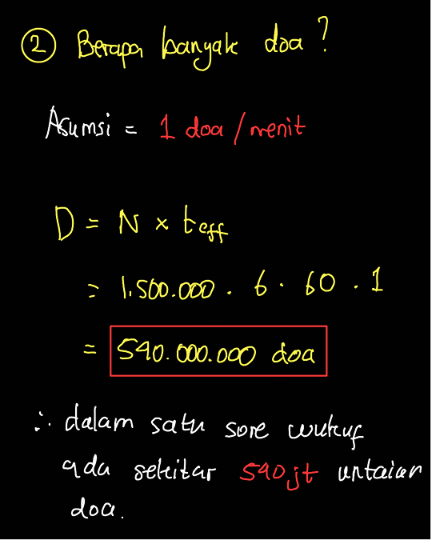 ② Berapa banyak doa?
Asumsi = 1 doa/menit
D = N × teff
= 1.500.000 . 6 . 60 . 1
= 540.000.000 doa
∴ dalam satu sore wukuf
ada sekitar 540jt untaian
doa.